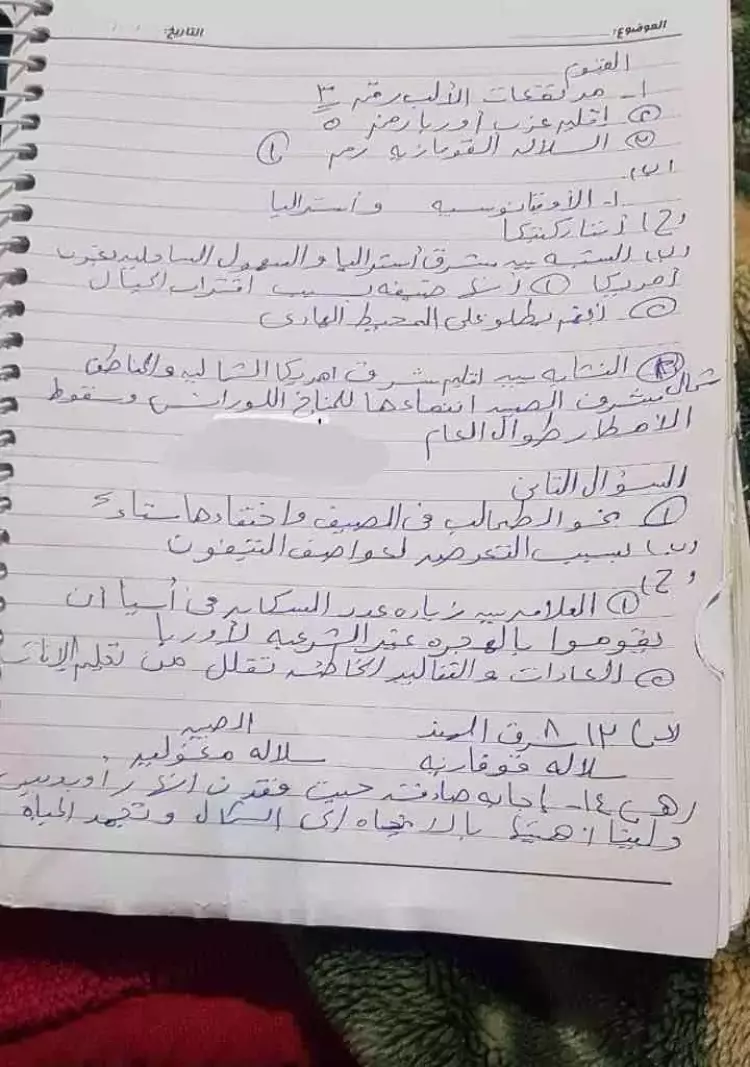 الموضوع: التاريخ:
الفيوم
١- مرتفعات الألب رقم ٣
② اقليم غرب أوربا رمز ٥
③ السلالة القوقازية رمز ①
(ب)
١- الأوقيانوسية وأستراليا
(ج) أنتاركتيكا
(ب) الشبه بين شرق أستراليا والسهول الساحلية بغرب
أمريكا ① أنها ضيقه بسبب اقتراب الجبال
② أنهم يطلو على المحيط الهادى
② التشابه بين اقليم شرق امريكا الشماليه والمناطق
شمال شرق الصين انتماءها للمناخ اللورانسى وسقوط
الأمطار طوال العام
السؤال الثانى
① نمو الطحالب فى الصيف واختفاءها شتاءً
(ب) بسبب التعرض لعواصف التيفون
(ج)
① العلاقه بين زياده عدد السكان فى أسيا ان
يقوموا بالهجره غير الشرعيه لأوربا
② العادات والتقاليد الخاطئه تقلل من تعليم الإناث
١٢ شرق الهند الصين
سلاله قوقازيه سلاله مغوليه
١٤- إجابه صادقه حيث فقدت انهار أوبوينسى
ولينا أهميتها بالاتجاه إلى الشمال وتجمد المياه